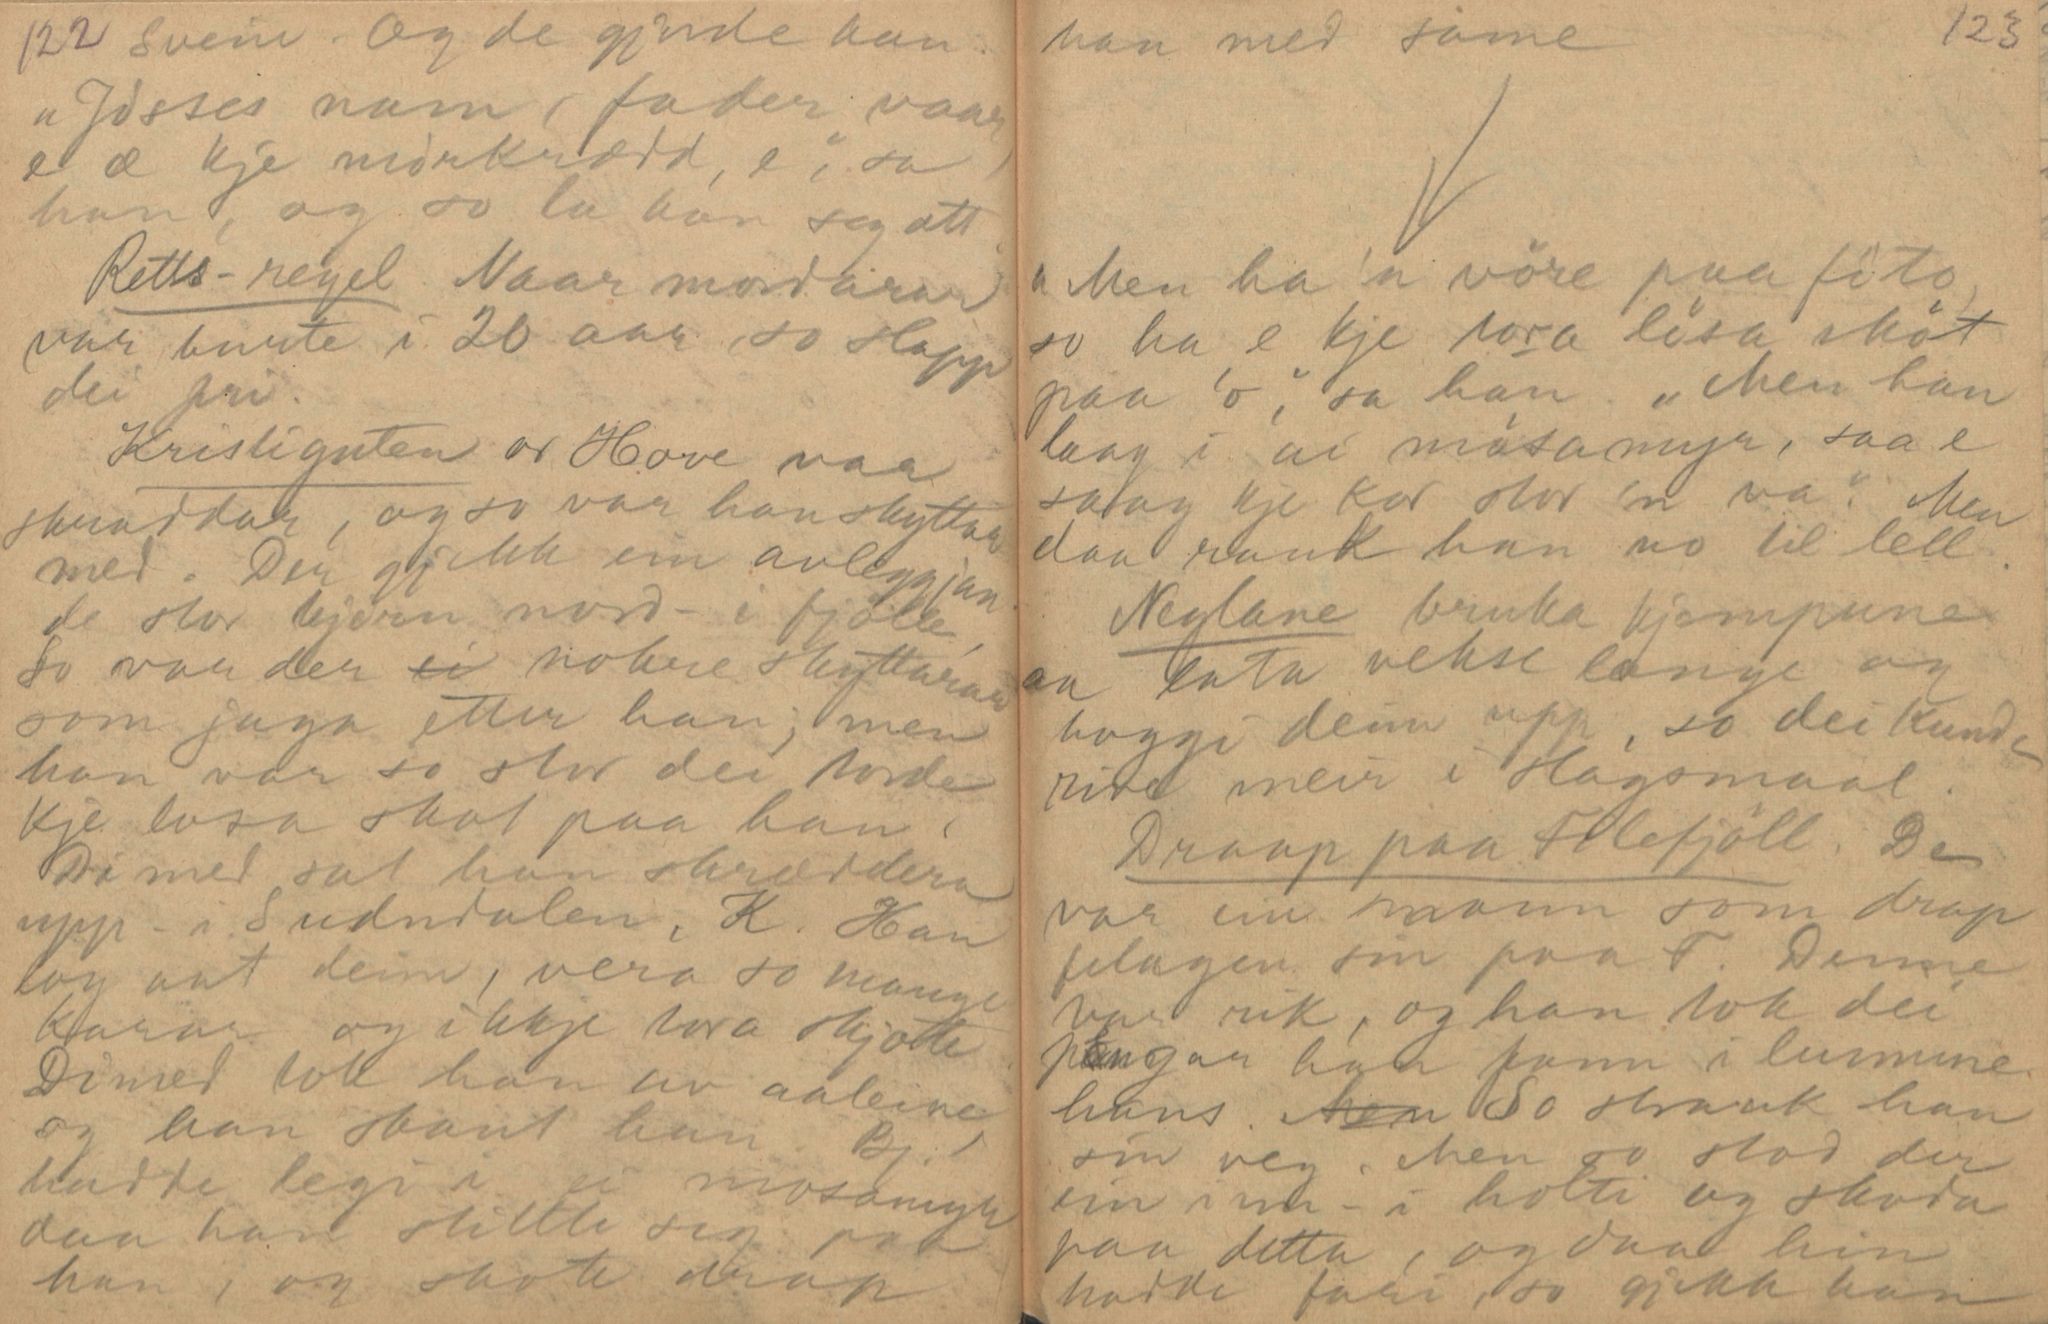 122 Svein. Og de gjorde han.
"Jösses namn, fader vaar
e æ kje mörkrædd, e", sa
han, og so la han seg att.
Retts-regel. Naar mordarar
var burte i 20 aar, so slapp
dei fri.
Kristiguten or Hove var
skraddar, og so var han skyttar
med. Der gjekk ein avleggjan-
de stor björn nord-i fjölle,
So var der ei nokre skyttarar
som jaga etter han; men
han var so stor dei torde
kje losa skot paa han.
Dimed sat han skræddera
upp-i Sudndalen, K. Han
log aat deim, vera so mange
karar og ikkje tora skjote
Dimed tok han av aaleine
og han skaut han. Bj.
hadde legi i ei mosamyr
daa han stillte seg paa
han, og skote drap
han med same 123
"Men ha 'n vöre paa föto,
so ha e kje tora lösa sköt
paa 'o", sa han. "Men han
laag i ai mösamyr, saa e
saag kje kor stor 'n va". Men
daa rauk han no til lell.
Neglane bruka kjempune
aa lata vekse lange og
hoggi deim upp, so dei kunde
rive meir i slagsmaal.
Draap paa Filefjöll. De
var ein mann som drap
felagen sin paa F. Denne
var rik, og han tok dei
pengar han fann i lummune
hans. Men So strauk han
sin veg. Men so stod der
ein inn-i holti og skoda
paa detta, og daa hin
hadde fari, so gjekk han